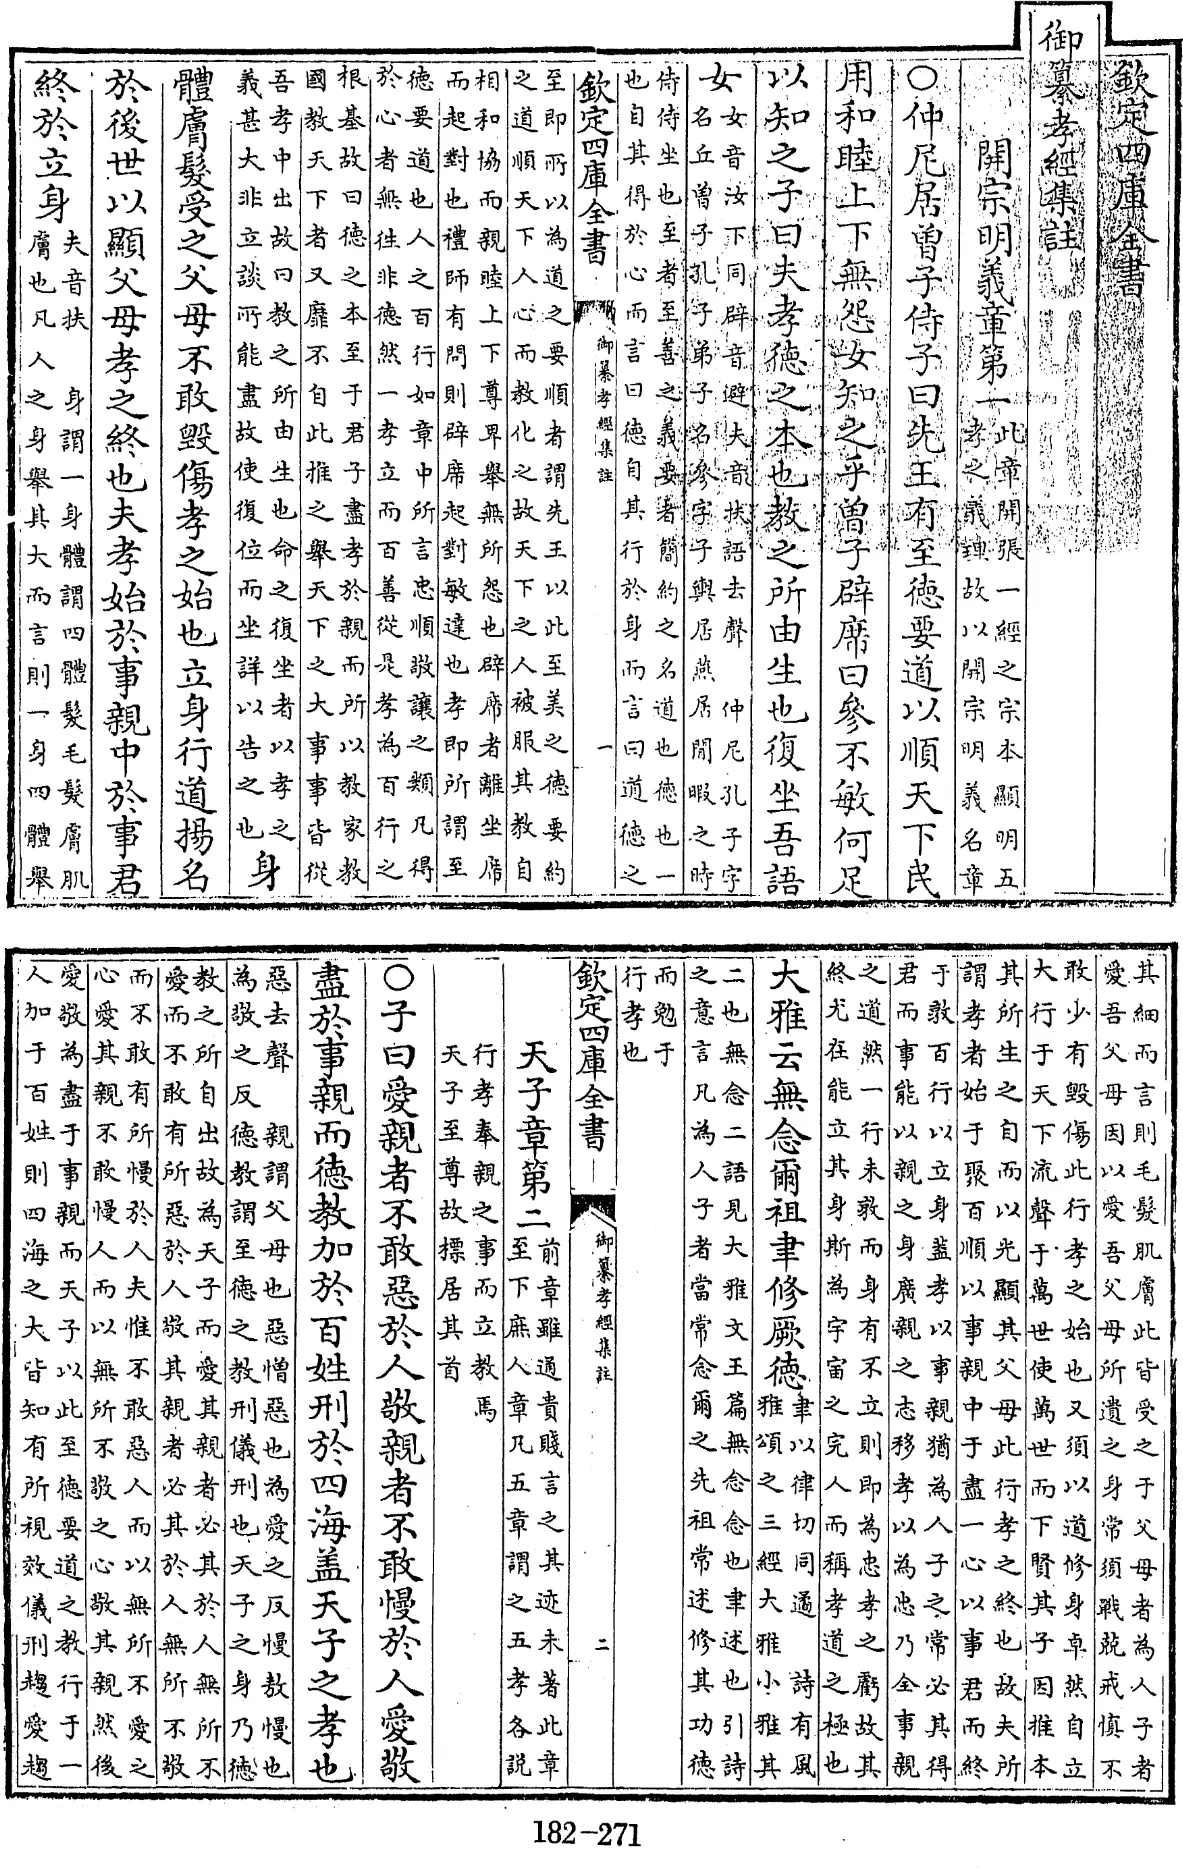 欽定四庫全書
御纂孝經集註
開宗明義章第一
此章開張一經之宗本顯明五
孝之義理故以開宗明義名章
○仲尼居曾子侍子曰先王有至德要道以順天下民
用和睦上下無怨女知之乎曾子辟席曰參不敏何足
以知之子曰夫孝德之本也教之所由生也復坐吾語
女
女音汝下同辟音避夫音扶語去聲 仲尼孔子字
名丘曾子孔子弟子名參字子輿居燕居閒暇之時
侍侍坐也至者至善之義要者簡約之名道也德也一
也自其得於心而言曰德自其行於身而言曰道德之
欽定四庫全書 御纂孝經集註 一
至即所以為道之要順者謂先王以此至美之德要約
之道順天下人心而教化之故天下之人被服其教自
相和協而親睦上下尊卑舉無所怨也辟席者離坐席
而起對也禮師有問則辟席起對敏達也孝即所謂至
德要道也人之百行如章中所言忠順敬讓之類凡得
於心者無往非德然一孝立而百善從是孝為百行之
根基故曰德之本至于君子盡孝於親而所以教家教
國教天下者又靡不自此推之舉天下之大事事皆從
吾孝中出故曰教之所由生也命之復坐者以孝之
義甚大非立談所能盡故使復位而坐詳以告之也
身
體膚髮受之父母不敢毀傷孝之始也立身行道揚名
於後世以顯父母孝之終也夫孝始於事親中於事君
終於立身
夫音扶 身謂一身體謂四體髮毛髮膚肌
膚也凡人之身舉其大而言則一身四體舉
其細而言則毛髮肌膚此皆受之于父母者為人子者
愛吾父母因以愛吾父母所遺之身常須戰兢戒慎不
敢少有毀傷此行孝之始也又須以道修身卓然自立
大行于天下流聲于萬世使萬世而下賢其子因推本
其所生之自而以光顯其父母此行孝之終也故夫所
謂孝者始于聚百順以事親中于盡一心以事君而終
于敦百行以立身蓋孝以事親猶為人子之常必其得
君而事能以親之身廣親之志移孝以為忠乃全事親
之道然一行未敦而身有不立則即為忠孝之虧故其
終尤在能立其身斯為宇宙之完人而稱孝道之極也
大雅云無念爾祖聿修厥德
聿以律切同遹 詩有風
雅頌之三經大雅小雅其
二也無念二語見大雅文王篇無念念也聿述也引詩
之意言凡為人子者當常念爾之先祖常述修其功德
而勉于
行孝也
欽定四庫全書 御纂孝經集註 二
天子章第二
前章雖通貴賤言之其迹未著此章
至下庶人章凡五章謂之五孝各說
行孝奉親之事而立教焉
天子至尊故標居其首
○子曰愛親者不敢惡於人敬親者不敢慢於人愛敬
盡於事親而德教加於百姓刑於四海蓋天子之孝也
惡去聲 親謂父母也惡憎惡也為愛之反慢敖慢也
為敬之反德教謂至德之教刑儀刑也天子之身乃德
教之所自出故為天子而愛其親者必其於人無所不
愛而不敢有所惡於人敬其親者必其於人無所不敬
而不敢有所慢於人夫惟不敢惡人而以無所不愛之
心愛其親不敢慢人而以無所不敬之心敬其親然後
愛敬為盡于事親而天子以此至德要道之教行于一
人加于百姓則四海之大皆知有所視效儀刑趨愛趨
182-271